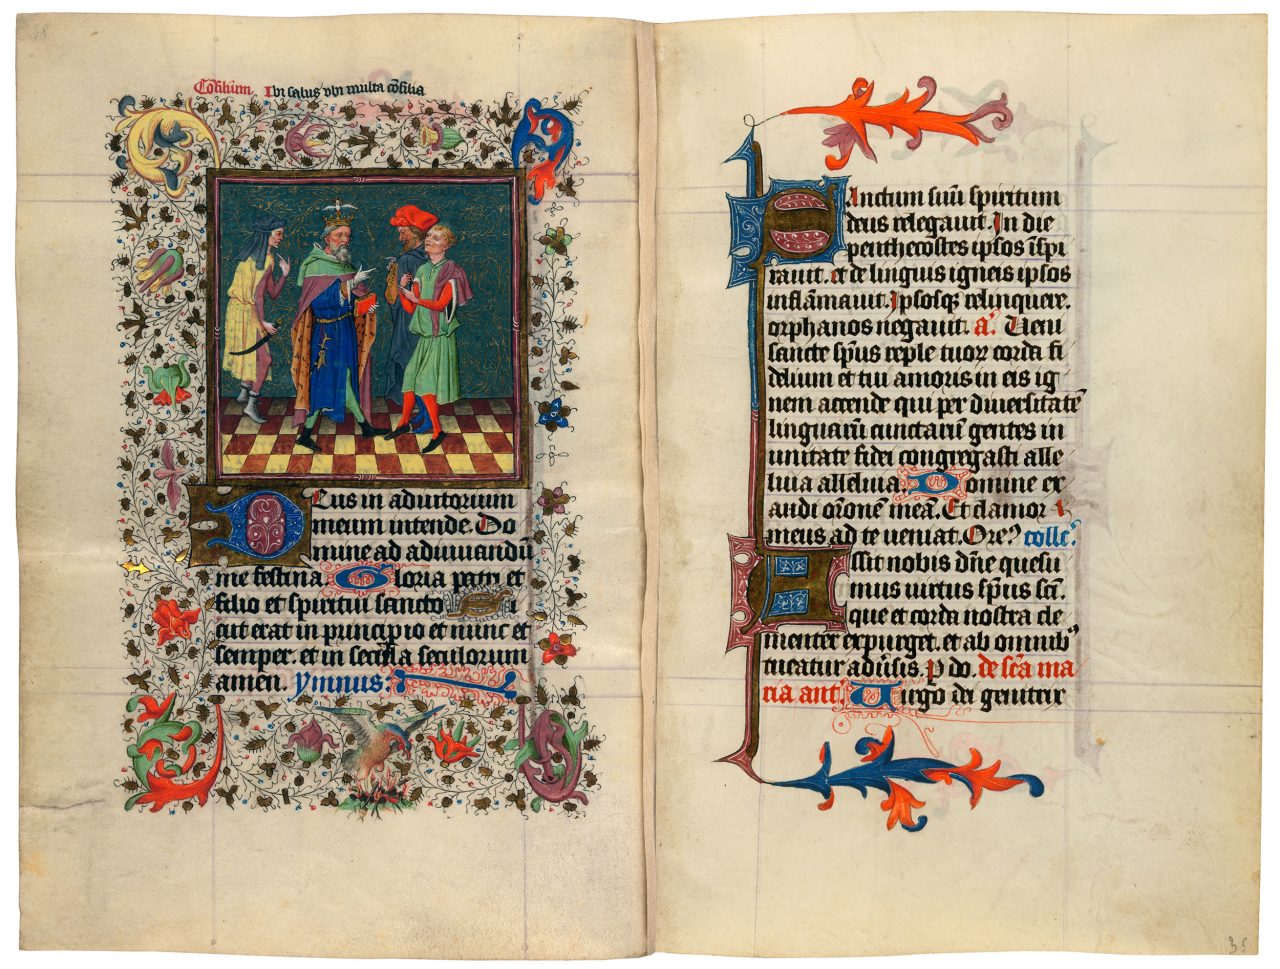 48
Cōsilium Ibi salus vbi multa cōsilia
Deus in adiutorium
meum intende. Do
mine ad adiuuandū
me festina. Gloria patri et
filio et spiritui sancto Si
cut erat in principio et nunc et
semper. et in secula seculorum
amen. ymnus:
Sanctum suū spiritum
deus relegauit. In die
penthecostes ipsos īspi
rauit. et de linguis igneis ipsos
inflāmauit. Ipsosq; relinquere.
orphanos negauit. a. Ueni
sancte sp̄us reple tuoꝝ corda fi
delium et tui amoris in eis ig
nem accende qui per diuersitatē
linguarū cunctarū gentes in
unitate fidei congregasti alle
luia alleluia. Domine ex
audi orōnem meā. Et clamor
meus ad te ueniat. Orem⁹ colle.
Assit nobis dn̄e quesu
mus uirtus sp̄us sct̄i
que et corda nostra cle
menter expurget. et ab omnib⁹
tueatur aduīsis. P do. de scā ma
ria ant. Uirgo dei genitrix
35